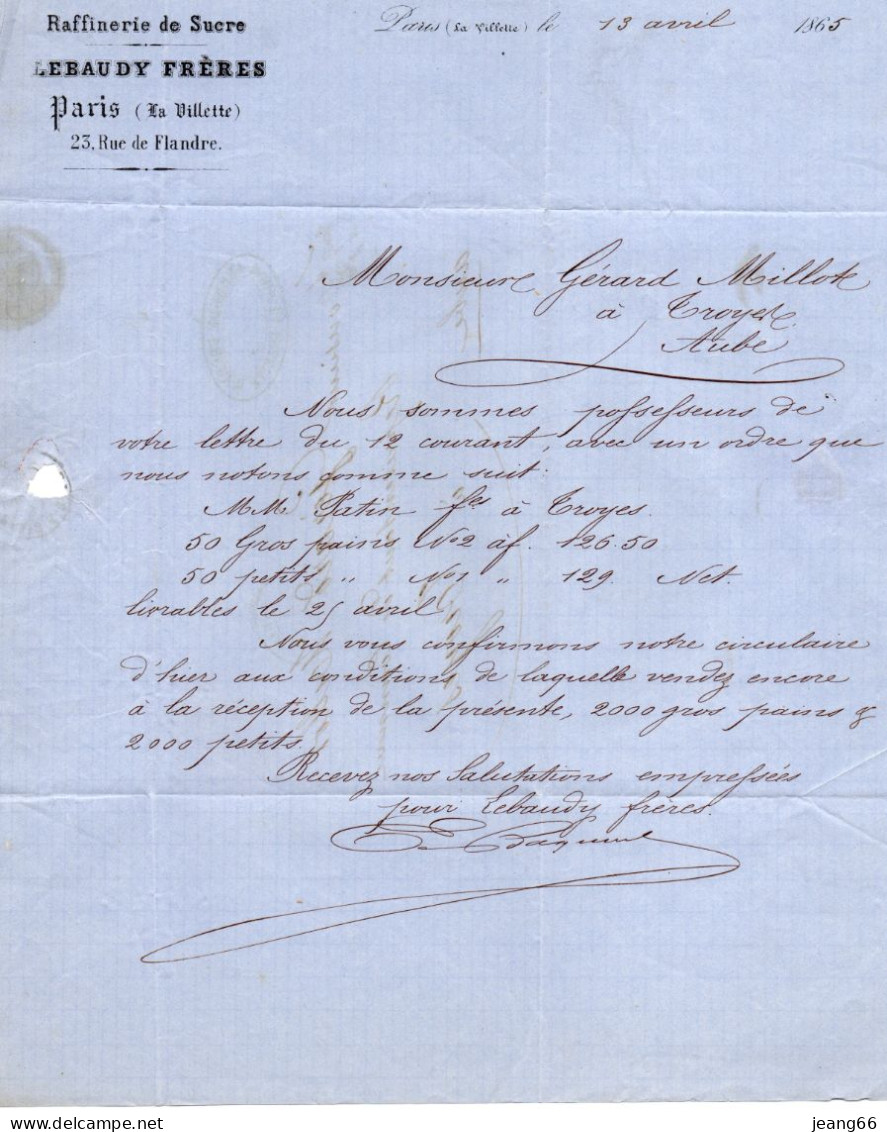 Raffinerie de Sucre
LEBAUDY FRÈRES
Paris (La Villette)
23, Rue de Flandre.
Paris (La Villette) le 13 avril 1865
Monsieur Gérard Millot
à Troyes
Aube
Nous sommes possesseurs de
votre lettre du 12 courant, avec un ordre que
nous notons comme suit:
MM. Patin fres à Troyes.
50 Gros pains No 2 à f. 126.50
50 petits " No 1 " 129. Net.
livrables le 25 avril
Nous vous confirmons notre circulaire
d'hier aux conditions de laquelle vendez encore
à la réception de la présente, 2000 gros pains &
2000 petits.
Recevez nos Salutations empressées
pour Lebaudy frères.
delcampe.net
jeang66